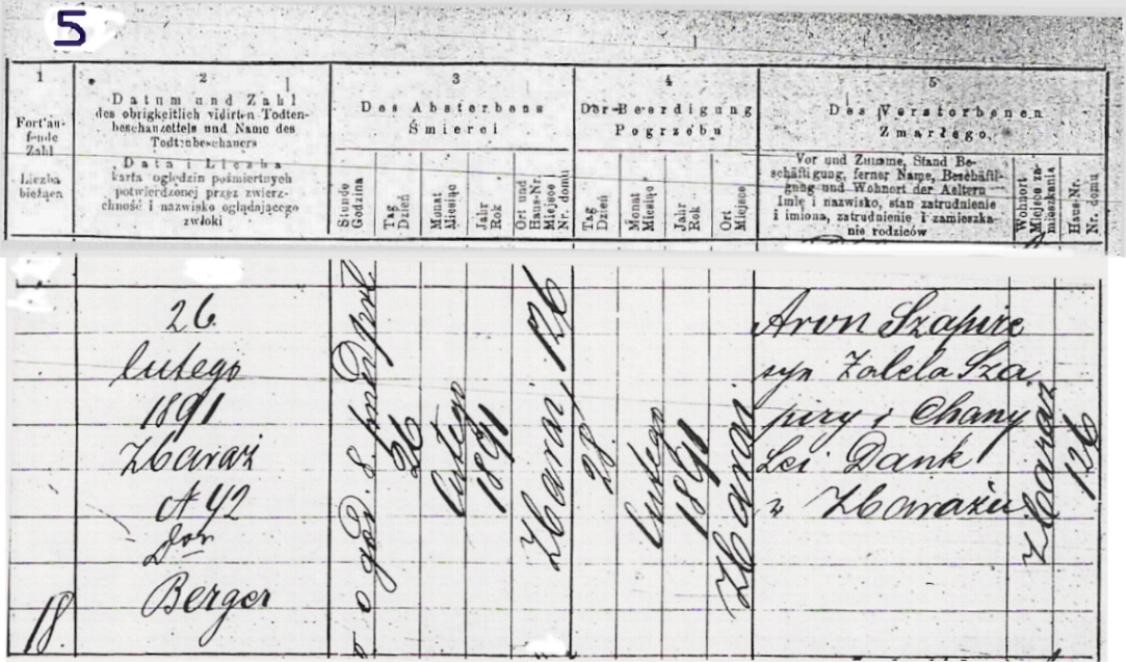 5
1
2
3
4
5
Fortlau-
fende
Zahl
Liczba
bieżąca
Datum und Zahl
des obrigkeitlich vidirten Todten-
beschauzettels und Name des
Todtenbeschauers
Data i Liczba
karta oględzin pośmiertnych
potwierdzonej przez zwierz-
chność i nazwisko oglądającego
zwłoki
Des Absterbens
Śmierci
Stunde
Godzina
Tag
Dzień
Monat
Miesiąc
Jahr
Rok
Ort und
Haus-Nr.
Miejsce
Nr. domu
Der Beerdigung
Pogrzebu
Tag
Dzień
Monat
Miesiąc
Jahr
Rok
Ort
Miejsce
Des Verstorbenen
Zmarłego
Vor und Zuname, Stand Be-
schäftigung, ferner Name, Beschäfti-
gung und Wohnort der Aeltern
Imię i nazwisko, stan zatrudnienie
i imiona, zatrudnienie i zamieszka
nie rodziców
Wohnort
Miejsce za-
mieszkania
Haus-Nr.
Nr. domu
18.
26
lutego
1891
Zbaraż
N 42
Berger
o god. 8.
26
lutego
1891
Zbaraż, 126
28
lutego
1891
Zbaraż
Aron Szapire
syn Zalela Sza
piry i Chany
Lei Dank
w Zbarażu
Zbaraż
126